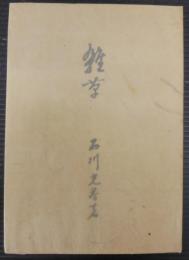 雑草
石川光春著